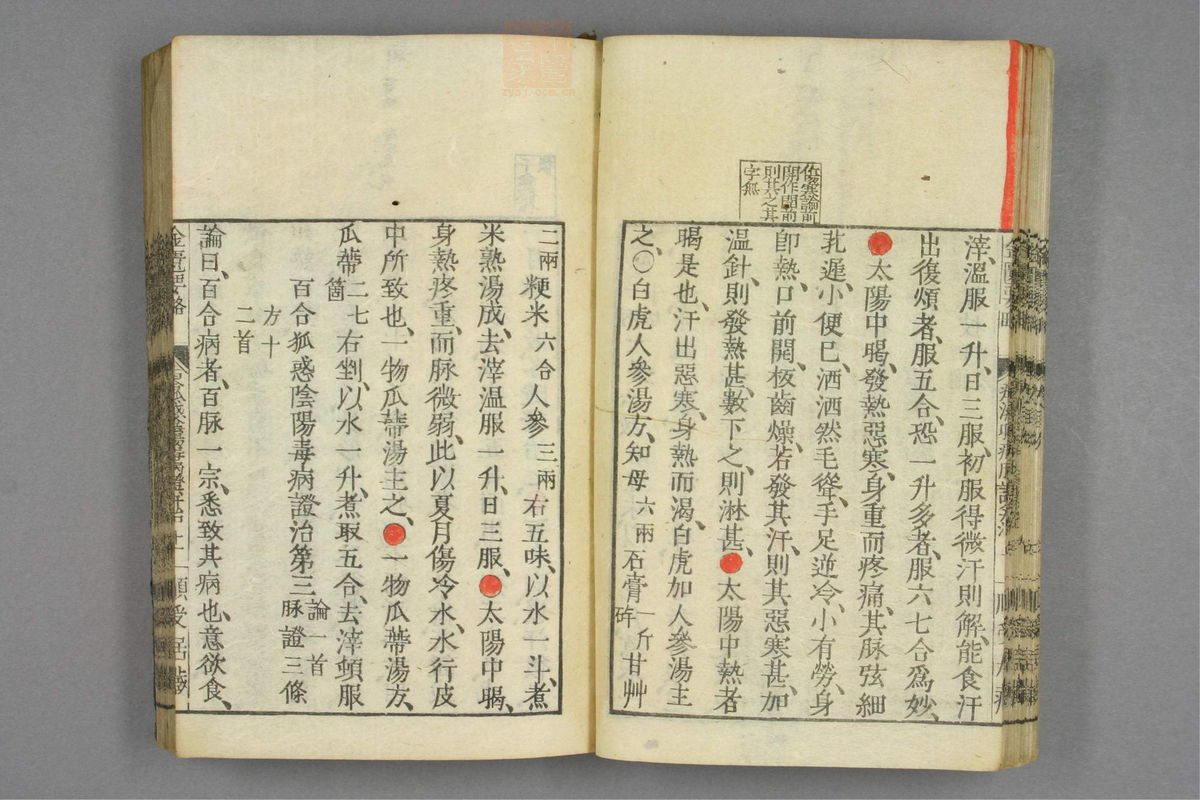 傷寒論前
開作開前
則其之其
字無
滓、溫服一升、日三服、初服得微汗則解、能食汗
出復煩者、服五合、恐一升多者、服六七合爲妙、
太陽中暍、發熱惡寒、身重而疼痛、其脉弦細
芤遲、小便已、洒洒然毛聳、手足逆冷、小有勞、身
卽熱、口前開、板齒燥、若發其汗、則其惡寒甚、加
溫針、則發熱甚、數下之、則淋甚、太陽中熱者
暍是也、汗出惡寒、身熱而渴、白虎加人參湯主
之、○白虎人參湯方、知母六兩石膏一斤碎甘艸
二兩粳米六合人參三兩右五味、以水一斗、煮
米熟湯成、去滓溫服一升、日三服、太陽中暍、
身熱疼重、而脉微弱、此以夏月傷冷水、水行皮
中所致也、一物瓜蔕湯主之、一物瓜蔕湯方、
瓜蔕二七箇右剉、以水一升、煮取五合、去滓頓服
百合狐惑陰陽毒病證治第三論一首脉證三條
方十二首
論曰、百合病者、百脉一宗、悉致其病也、意欲食、
zysj.com.cn